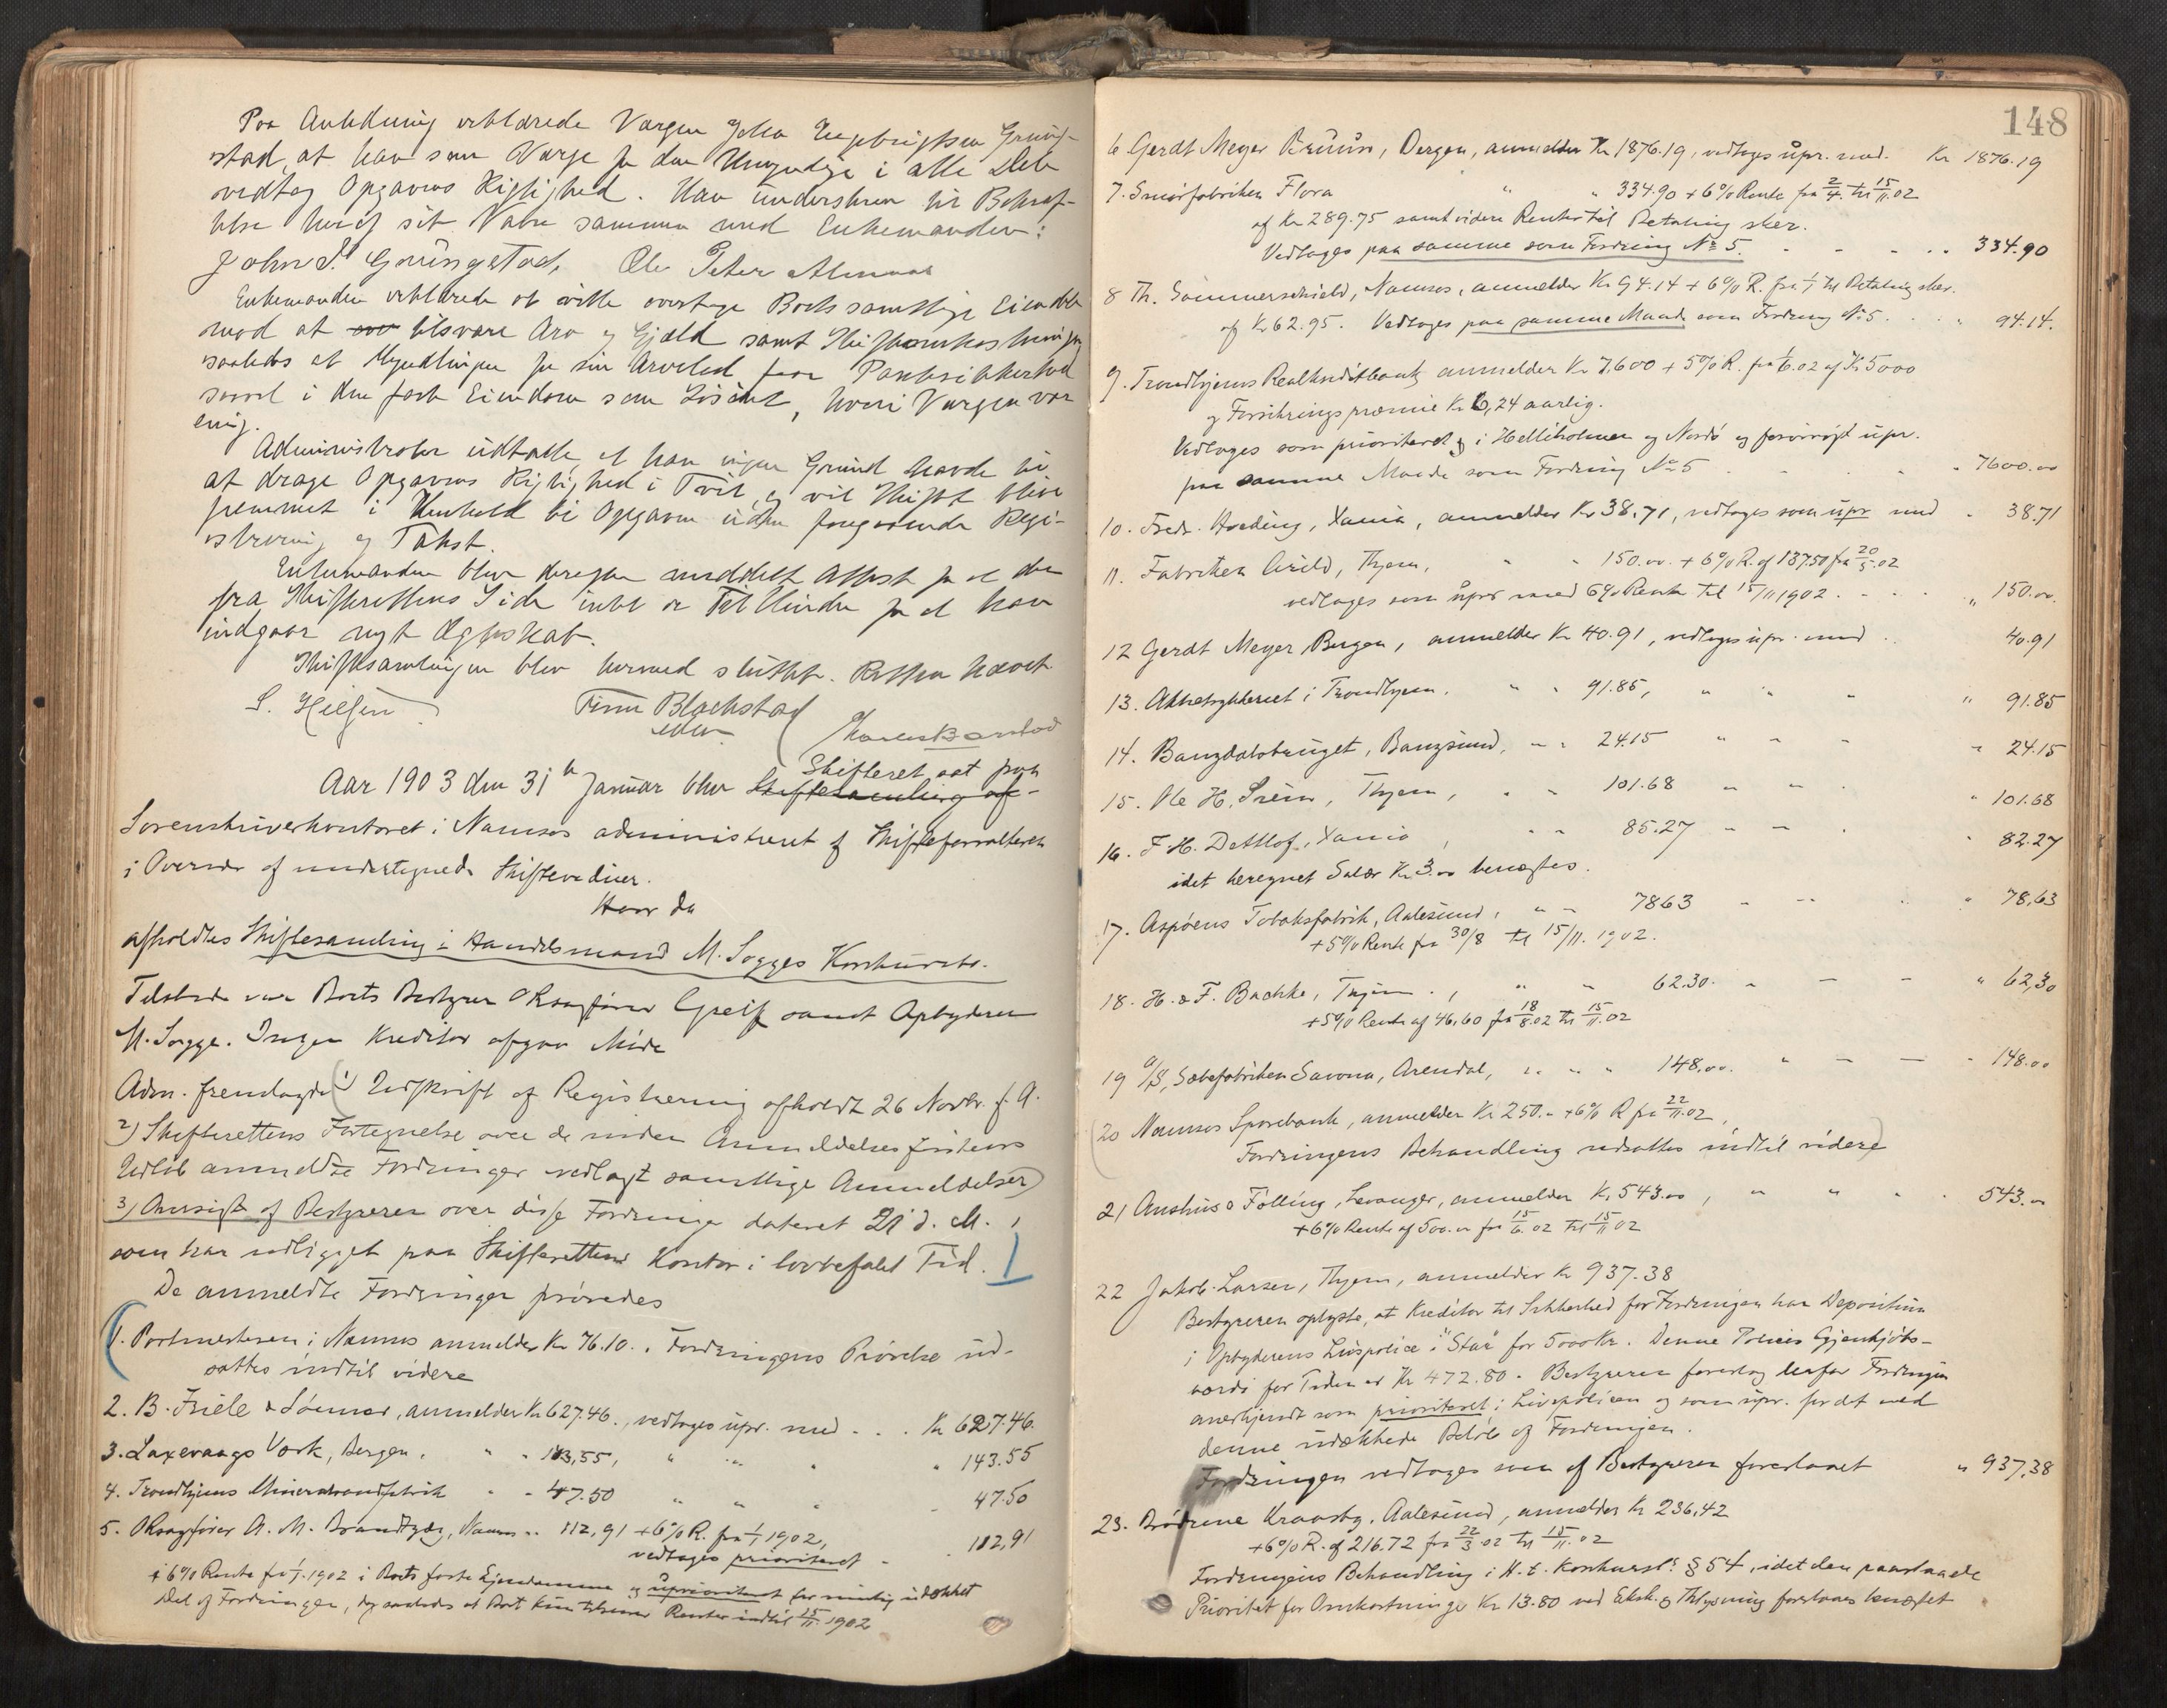 Paa Anledning erklærede Vergen John Engebrigtsen Grüng-
stad, at han som Verge for den Umyndige i alle Dele
vedtog Opgavens Rigtighed. Han underskrev til Bekræf-
telse heraf sit Navn sammen med Enkemanden:
John E. Grüngstad, Ole Peter
Enkemanden erklærede at ville overtage Boets samtlige Eiendele
mod at tilsvare Arv og Gjæld samt Skifteomkostninger
saaledes at Myndlingen for sin Arvelod faar Pantsikkerhed
saavel i den faste Eiendom som Løsøret, hvori Vergen var
enig.
Administrator udtalte, at han ingen Grund havde til
at drage Opgavens Rigtighed i Tvil, og vil Skiftet blive
fremmet i Henhold til Opgaven uden foregaaende Regi-
strering og Takst.
Enkemanden blev derefter meddelt Attest for at der
fra Skifterettens Side intet er Til Hinder for at han
indgaar nyt Ægteskab.
Skiftesamlingen blev hermed sluttet. Retten hævet.
S. Nielsen Finn Blackstad
Skifteret sat paa
Aar 1903 den 31te Januar blev Skiftesamling af-
Sorenskriverkontoret i Namsos administreret af Skifteforvalteren
i Overvær af undertegnede Skiftevidner.
Hvor da
afholdtes Skiftesamling i Handelsmand M. Sogges Konkursbo.
Tilstede var Boets Bestyrer Oksagfører Greiff samt Opbyderen
M. Sogge. Ingen Kreditor afgav Møde
Adm. fremlagde 1) Udskrift af Registrering afholdt 26 Novbr. f. A.
2) Skifterettens Fortegnelse over de inden Anmeldelsesfristens
Udløb anmeldte Fordringer vedlagt samtlige Anmeldelser)
3) Omsigt af Bestyreren over disse Fordringer dateret 21 d. M.,
som har udligget paa Skifterettens Kontor i lovbefalet Tid.
De anmeldte Fordringer prøvedes
1. Postmesteren i Namsos anmelder Kr 76.10. Fordringens Prøvelse ud-
sattes indtil videre
2. B. Friele & Sønner, anmelder Kr 627.46., vedtages upr. med . . . Kr 627.46.
3. Laxevaags Værk, Bergen, " " 143,55, " " " " 143.55
4. Trondhjems Mineralvandfabrik " - 47.50 " " " - 47.50
5. Oksagfører A. M. Brandtzæg, Namsos " 112,91 + 6% R. fra 1/1 1902,
vedtages prioriteret - - 112,91
+ 6% Rente fra 1/1 1902 i Boets faste Ejendomme og uprioriteret for mulig udækket
Del af Fordringen, dog saaledes at Boet kun tilsvarer Renter indtil 15/11 1902
148
6 Gerdt Meyer Brüün, Bergen, anmelder Kr 1876.19, vedtages upr. med. Kr 1876.19
7. Smørfabriken Flora " " 334.90 + 6% Rente fra 2/4 til 15/11 02
af Kr 289.75 samt videre Renter til Betaling sker.
Vedtages paa samme som Fordring No 5. - - - .. 334.90
8 Th. Sommerschield, Namsos, anmelder Kr 94.14 + 6% R. fra 1/1 til Betaling sker.
af Kr 62.95. Vedtages paa samme Maade som Fordring No 5. . . " 94.14.
9. Trondhjems Realkreditbank anmelder Kr 7.600 + 5% R. fra 1/6.02 af Kr 5000
og Forsikringspræmie Kr 6,24 aarlig.
Vedtages som prioriteret i Helliholmen og Nordø og forøvrigt upr.
paa samme Maade som Fordring No 5 - - . " 7600.00
10. Fredr. Hoeding, Xania, anmelder Kr 38.71, vedtages som upr med - 38.71
11. Fabriken Arild, Thjem, " " 150.00 + 6% R. af 137.50 fra 20/5.02
vedtages som upr med 6% Rente til 15/11 1902 . - - . " 150.00.
12 Gerdt Meyer, Bergen, anmelder Kr 40.91, vedtages upr. med . 40.91
13. Aktietrykkeriet i Trondhjem, " " 91.85, " " " " 91.85
14. Bangdalsbruget, Bangsund, " " 24.15 " " " " 24.15
15. Ole H. Sveen, Thjem, " " 101.68 " " . " 101.68
16. F. H. Dethlof, Xania, " " 85.27 " " . " 82.27
idet beregnet Salær Kr 3.00 benægtes.
17. Aspøens Tobaksfabrik, Aalesund, " " 7863 - - . " 78,63
+ 5% Rente fra 30/8 til 15/11. 1902.
18. H. & F. Bachke, Thjem . , " " 62.30. - - - " 62,30
+ 5% Rente af 46,60 fra 18/8.02 til 15/11.02
19 A/S, Sæbefabriken Savona, Arendal, " " " 148.00. " - - - 148.00
(20 Namsos Sparebank, anmelder Kr 250.- + 6% R fra 22/11.02,
Fordringens Behandling udsattes indtil videre)
21 Aushus & Følling, Levanger, anmelder Kr 543.00, " " " . 543.00
+ 6% Rente af 500.00 fra 15/6.02 til 15/11 02
22 Jakob Larsen, Thjem, anmelder Kr 937.38
Bestyreren oplyste, at Kreditor til Sikkerhed for Fordringen har Depositum
i Opbyderens Livspolice i "Star" for 5000 Kr. Denne Polices Gjenkjøbs-
værdi for Tiden er Kr 472.80. Bestyreren foreslog derfor Fordringen
anerkjendt som prioriteret i Livspolicen og som upr. for det ved
denne udækkede Beløb af Fordringen.
Fordringen vedtages som af Bestyreren foreslaaet " 937,38
23. Brødrene Kraasby, Aalesund, anmelder Kr 236,42
+ 6% R. af 216.72 fra 22/3 02 til 15/11.02
Fordringens Behandling i H. t. Konkursl.s § 54, idet den paastaaede
Prioritet for Omkostninger Kr 13.80 ved Eksk. og Thlysning foreslaaes benægtet